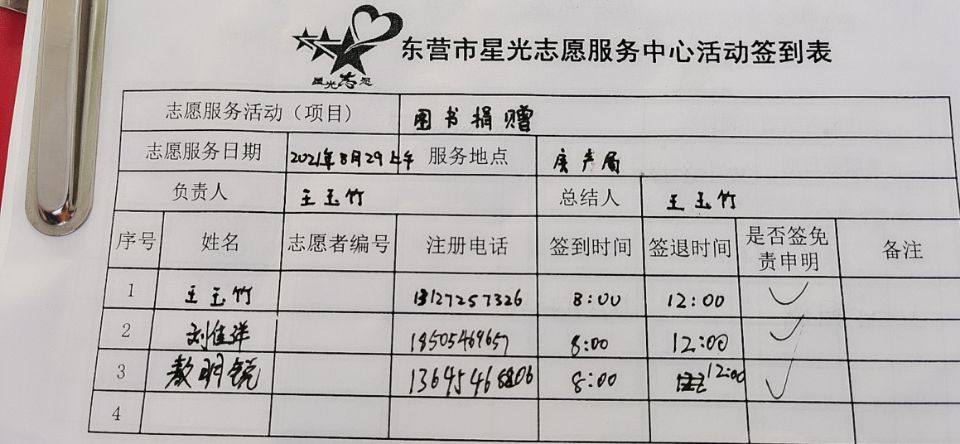 星光志愿
东营市星光志愿服务中心活动签到表
志愿服务活动（项目） 图书捐赠
志愿服务日期 2021年8月29上午 服务地点 房产局
负责人 王玉竹 总结人 王玉竹
序号 姓名 志愿者编号 注册电话 签到时间 签退时间 是否签免责申明 备注
1 王玉竹 13127257326 8:00 12:00
2 刘佳洋 18505469657 8:00 12:00
3 敖明锐 8:00 12:00
4